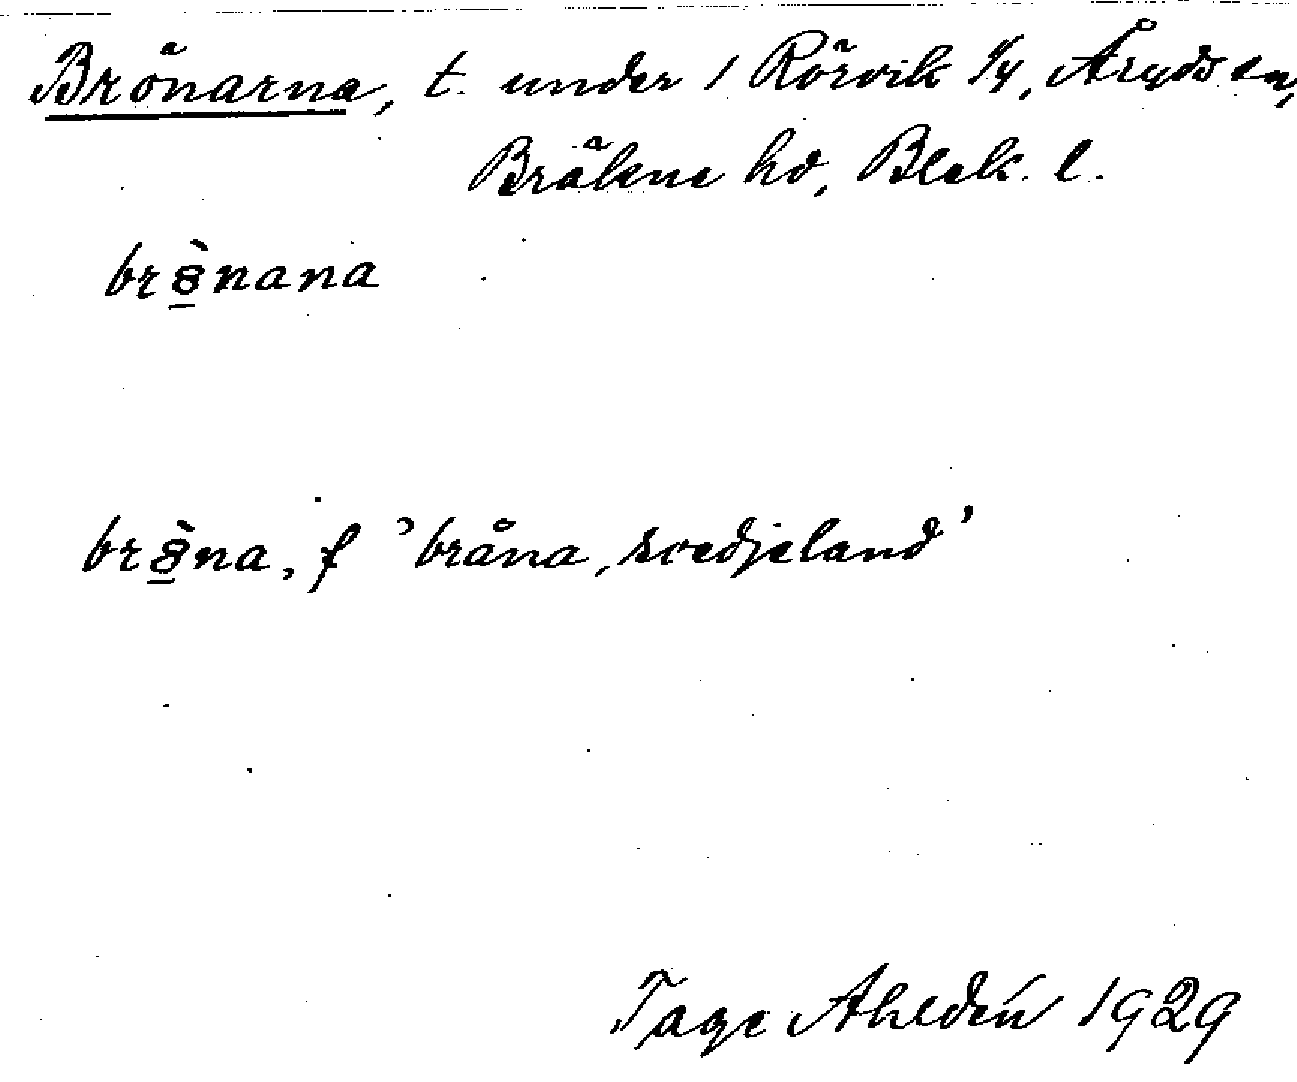 Brönarna, t. under 1 Rörvik 1/4, Åryds sn,
Bräkne hd, Blek. l.
brö̀nana
brö̀na, f 'bråna, svedjeland'
Tage Ahldén 1929